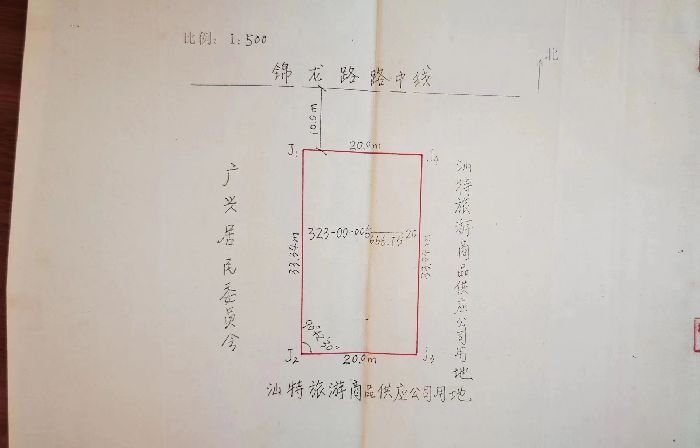 比例: 1:500
北
锦龙路路中线
10.0m
J1
20.0m
J4
广兴居民委员会
33.34m
323-00-00
20
33.34m
汕特旅游商品供应公司用地
J2
20.0m
J3
汕特旅游商品供应公司用地